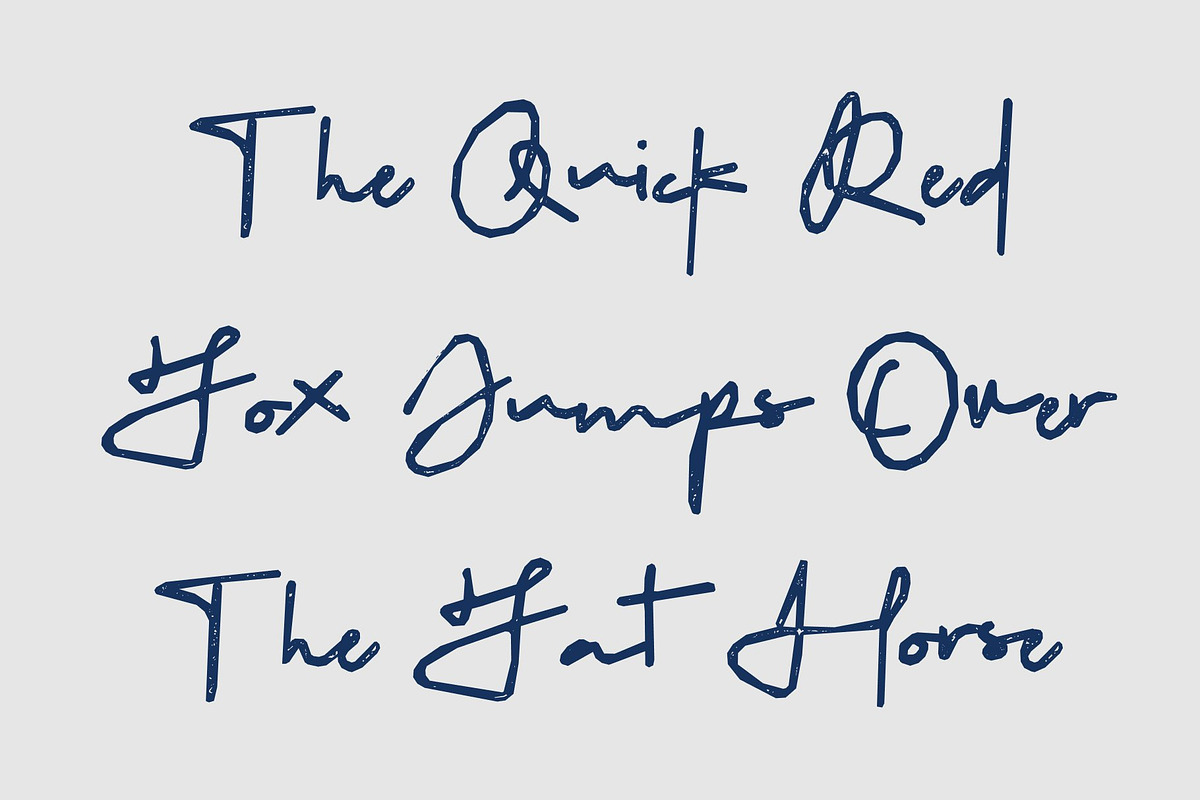 The Quick Red
Fox Jumps Over
The Fat Horse